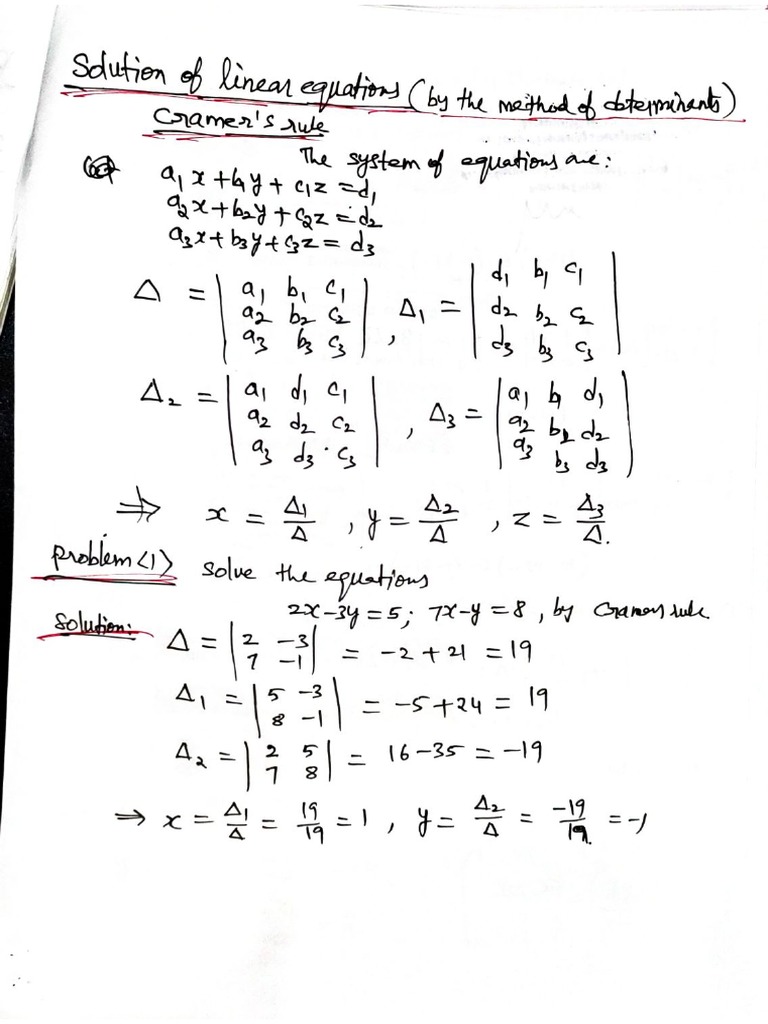 Solution of linear equations (by the method of determinants)
Cramer's rule
The system of equations are:
a₁x + b₁y + c₁z = d₁
a₂x + b₂y + c₂z = d₂
a₃x + b₃y + c₃z = d₃
Δ = | a₁ b₁ c₁ | , Δ₁ = | d₁ b₁ c₁ |
| a₂ b₂ c₂ | | d₂ b₂ c₂ |
| a₃ b₃ c₃ | | d₃ b₃ c₃ |
Δ₂ = | a₁ d₁ c₁ | , Δ₃ = | a₁ b₁ d₁ |
| a₂ d₂ c₂ | | a₂ b₂ d₂ |
| a₃ d₃ c₃ | | a₃ b₃ d₃ |
⇒ x = Δ₁/Δ , y = Δ₂/Δ , z = Δ₃/Δ.
Problem <1> Solve the equations
2x-3y = 5; 7x-y = 8, by Cramers rule.
Solution:
Δ = | 2 -3 | = -2 + 21 = 19
| 7 -1 |
Δ₁ = | 5 -3 | = -5+24 = 19
| 8 -1 |
Δ₂ = | 2 5 | = 16-35 = -19
| 7 8 |
⇒ x = Δ₁/Δ = 19/19 = 1 , y = Δ₂/Δ = -19/19. = -1